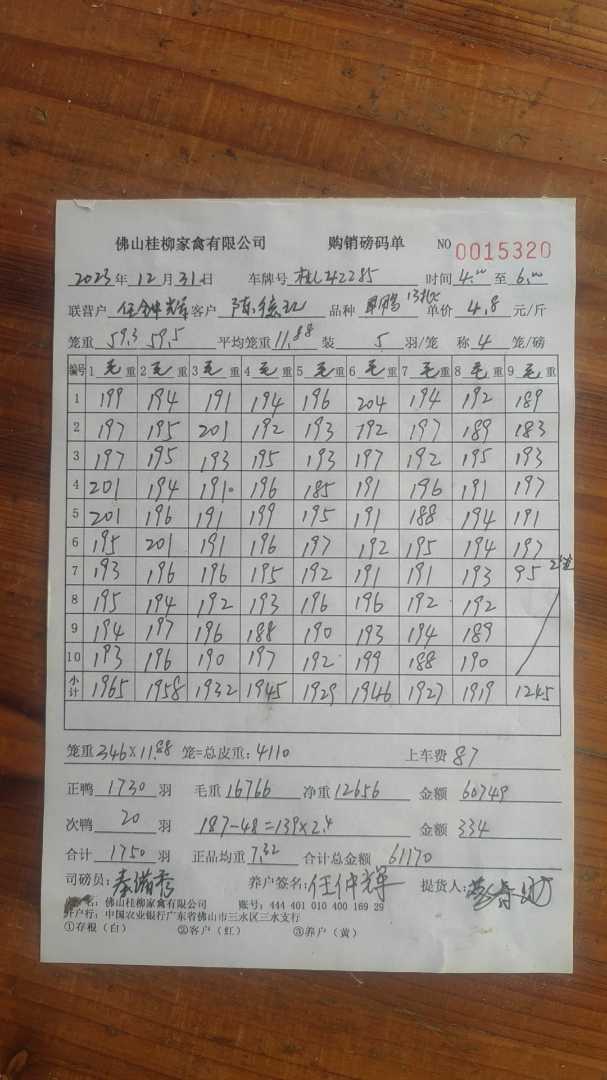 佛山桂柳家禽有限公司 购销磅码单 NO 0015320
2023年 12月 31日 车牌号 桂L42285 时间 4.00 至 6.00
联营户 任仲辉 客户 陈 品种 单价 4.8 元/斤
笼重 59.3 59.5 平均笼重 11.88 装 5 羽/笼 称 4 笼/磅
编号 1 毛重 2 毛重 3 毛重 4 毛重 5 毛重 6 毛重 7 毛重 8 毛重 9 毛重
1 199 194 191 194 196 204 194 192 189
2 197 195 201 192 193 192 197 189 183
3 197 195 193 195 193 197 192 195 193
4 201 194 191 196 185 191 196 191 197
5 201 196 191 199 195 191 188 194 191
6 195 201 191 196 197 192 195 194 197
7 193 196 196 195 192 191 191 193 95 2笼
8 195 194 192 193 196 196 192 192
9 194 197 196 188 190 193 194 189
10 193 196 190 197 192 199 188 190
小计 1965 1958 1932 1945 1929 1946 1927 1919 1245
笼重 346×11.88 笼=总皮重: 4110 上车费 87
正鸭 1730 羽 毛重 16766 净重 12656 金额 60749
次鸭 20 羽 187-48=139×2.4 金额 334
合计 1750 羽 正品均重 7.32 合计总金额 61170
司磅员: 养户签名: 任仲辉 提货人:
名: 佛山桂柳家禽有限公司 账号: 444 401 010 400 169 29
开户行: 中国农业银行广东省佛山市三水区三水支行
①存根(白) ②客户(红) ③养户(黄)